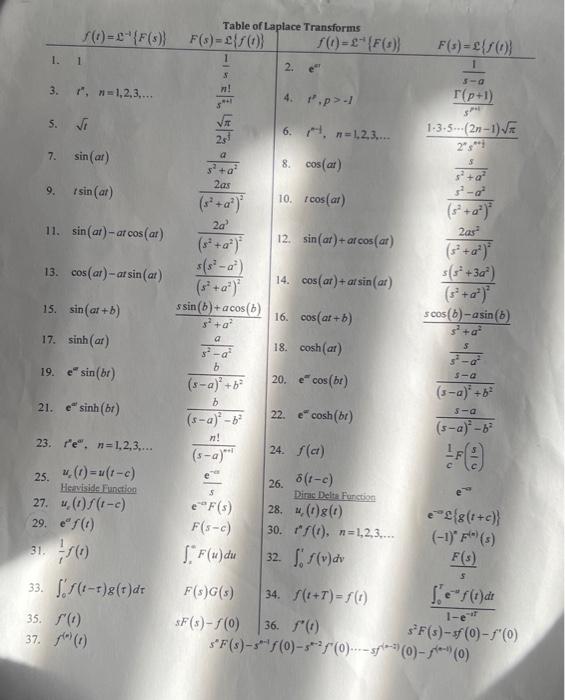 Table of Laplace Transforms
f(t)=£⁻¹{F(s)} F(s)=£{f(t)} f(t)=£⁻¹{F(s)} F(s)=£{f(t)}
1. 1 1/s 2. e^(at) 1/(s-a)
3. tⁿ, n=1,2,3,... n!/s^(n+1) 4. t^p, p>-1 Γ(p+1)/s^(p+1)
5. √t √π/(2s^(3/2)) 6. t^(n-½), n=1,2,3,... 1·3·5···(2n-1)√π/(2ⁿs^(n+½))
7. sin(at) a/(s²+a²) 8. cos(at) s/(s²+a²)
9. t sin(at) 2as/(s²+a²)² 10. t cos(at) (s²-a²)/(s²+a²)²
11. sin(at)-at cos(at) 2a³/(s²+a²)² 12. sin(at)+at cos(at) 2as²/(s²+a²)²
13. cos(at)-at sin(at) s(s²-a²)/(s²+a²)² 14. cos(at)+at sin(at) s(s²+3a²)/(s²+a²)²
15. sin(at+b) (s sin(b)+a cos(b))/(s²+a²) 16. cos(at+b) (s cos(b)-a sin(b))/(s²+a²)
17. sinh(at) a/(s²-a²) 18. cosh(at) s/(s²-a²)
19. e^(at) sin(bt) b/((s-a)²+b²) 20. e^(at) cos(bt) (s-a)/((s-a)²+b²)
21. e^(at) sinh(bt) b/((s-a)²-b²) 22. e^(at) cosh(bt) (s-a)/((s-a)²-b²)
23. tⁿe^(at), n=1,2,3,... n!/(s-a)^(n+1) 24. f(ct) (1/c)F(s/c)
25. u_c(t)=u(t-c) e^(-cs)/s 26. δ(t-c) e^(-cs)
Heaviside Function Dirac Delta Function
27. u_c(t)f(t-c) e^(-cs)F(s) 28. u_c(t)g(t) e^(-cs)£{g(t+c)}
29. e^(ct)f(t) F(s-c) 30. tⁿf(t), n=1,2,3,... (-1)ⁿF^(n)(s)
31. (1/t)f(t) ∫_s^∞ F(u)du 32. ∫_0^t f(v)dv F(s)/s
33. ∫_0^t f(t-τ)g(τ)dτ F(s)G(s) 34. f(t+T)=f(t) ∫_0^T e^(-st)f(t)dt/(1-e^(-sT))
35. f'(t) sF(s)-f(0) 36. f''(t) s²F(s)-sf(0)-f'(0)
37. f^(n)(t) sⁿF(s)-s^(n-1)f(0)-s^(n-2)f'(0)···-sf^(n-2)(0)-f^(n-1)(0)